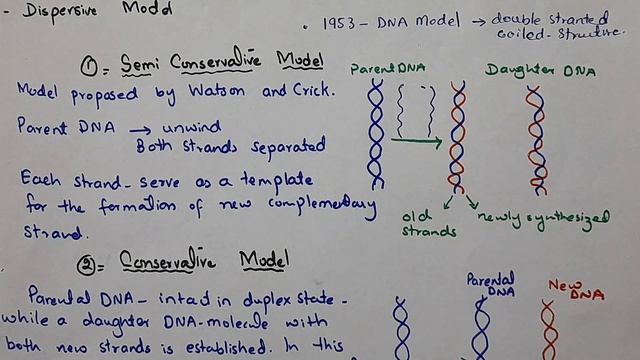 - Dispersive Model
. 1953 - DNA Model → double stranted
coiled - Structure.
① = Semi Conservative Model
Model proposed by Watson and Crick.
Parent DNA → unwind
Both strands separated
Each strand - serve as a template
for the formation of new complementary
strand.
Parent DNA
Daughter DNA
old
strands
newly synthesized
② = Conservative Model
Parental DNA - intact in duplex state -
while a daughter DNA-molecule with
both new strands is established. In this
Parental
DNA
New
DNA